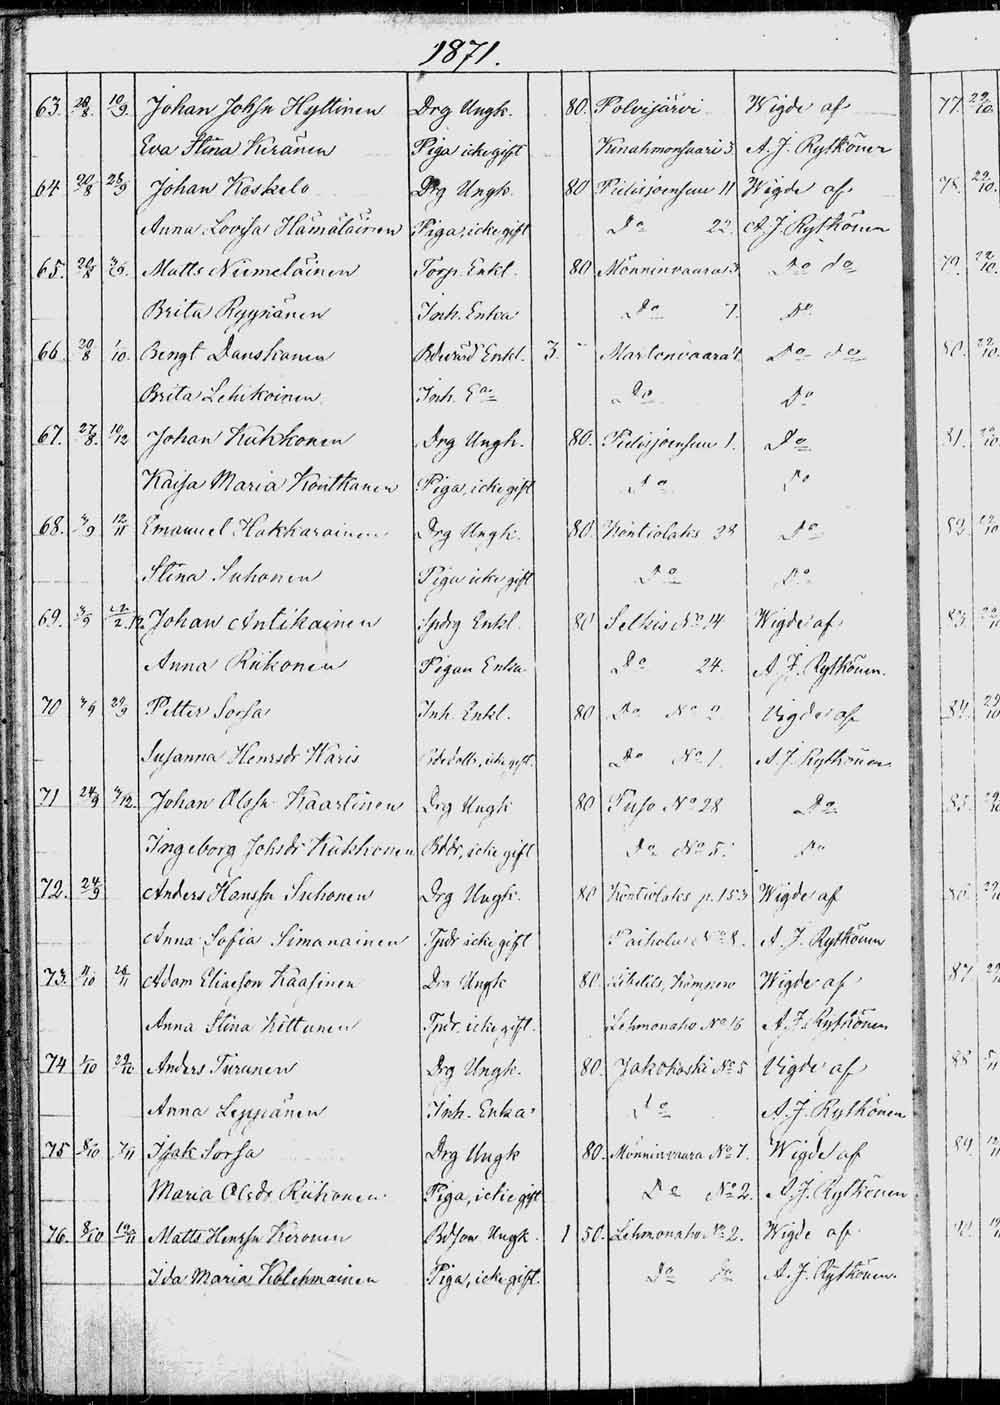 1871.
63. 20/8. 10/9. Johan Johsn Hyttinen Drg Ungk. 80. Polvijärvi Wigde af
Eva Stina Keränen Piga icke gift Kinahmonsaari 3. A. J. Rytkönen
64 20/8 28/9 Johan Koskelo Drg Ungk. 80 Pielisjoensuu 11 Wigde af
Anna Lovisa Hämäläinen Piga, icke gift Do 22. A. J. Rytkönen
65. 20/8 Matts Niemeläinen Torp. Enkl. 80 Mönninvaara Do do
Brita Ryynänen Inh. Enka Do 7. Do
66 20/8 1/10. Bengt Danskanen Enkl. 3. - Martonvaara Do do
Brita Lehikoinen Inh. Ea Do Do
67. 27/8. 10/12 Johan Kukkonen Drg Ungk. 80. Pielisjoensuu 1. Do
Kaisa Maria Kontkanen Piga, icke gift Do Do
68. 3/9 12/11 Emanuel Hakkarainen Drg Ungk. 80. Kontiolaks 38 Do
Stina Suhonen Piga icke gift Do Do
69. 3/9 Johan Antikainen Enkl. 80 Selkis No 14 Wigde af
Anna Riikonen Pigan Enka Do 24. A. J. Rytkönen.
70 3/9 29/9 Petter Sorsa Inh. Enkl. 80 Do No 2 Vigde af
Susanna Henrsdr Haris icke gift. Do No 1. A. J. Rytkönen
71 24/9 3/12. Johan Olssn Kaartinen Drg Ungk 80 Puso No 28 Do
Ingeborg Johsdr Kukkonen Bddr, icke gift Do No 5. Do
72. 24/9 Anders Hanssn Suhonen Drg Ungk. 80 Kontiolaks p. 153 Wigde af
Anna Sofia Simanainen Tpdr icke gift Paihola No 8. A. J. Rytkönen
73. 28/11 Adam Eliasson Kaasinen Drg Ungk 80. Libelits, Wigde af
Anna Stina Kettunen Tpdr. icke gift. Lehmonaho No 16 A. J. Rytkönen
74 1/10 29/10 Anders Turunen Drg Ungk. 80. Jakokoski No 5 Vigde af
Anna Leppänen Inh. Enka Do A. J. Rytkönen
75 8/10 Isak Sorsa Drg Ungk 80. Mönninvaara No 7. Wigde af
Maria Olsdr Riikonen Piga, icke gift Do No 2. A. J. Rytkönen
76. 8/10 19/11 Matts Henrssn Keronen Bdson Ungk. 1 50. Lehmonaho No 2. Wigde af
Ida Maria Kolehmainen Piga, icke gift. Do Do A. J. Rytkönen.
77. 22/10.
78. 22/10.
79. 22/10.
80. 22/10.
81. 22/10
82. 22/10
83. 22/10
84. 29/10
85. 29/10
86. 29/10
87 29/10
88 5/11
89.